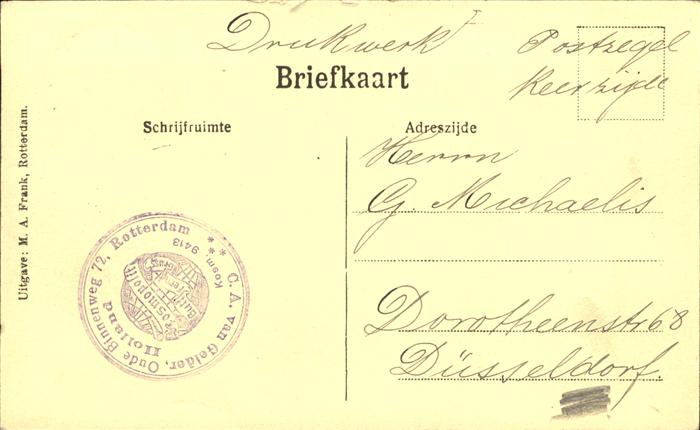 Drukwerk
Postzegel
keerzijde
Briefkaart
Schrijfruimte
Adreszijde
Uitgave: M. A. Frank, Rotterdam.
Herrn
G. Michaelis
Dorotheenstr 68
Düsseldorf.
* * C. A. van Gelder, Oude Binnenweg 72, Rotterdam
Holland
Kosm. * 9413
Cosmopolit